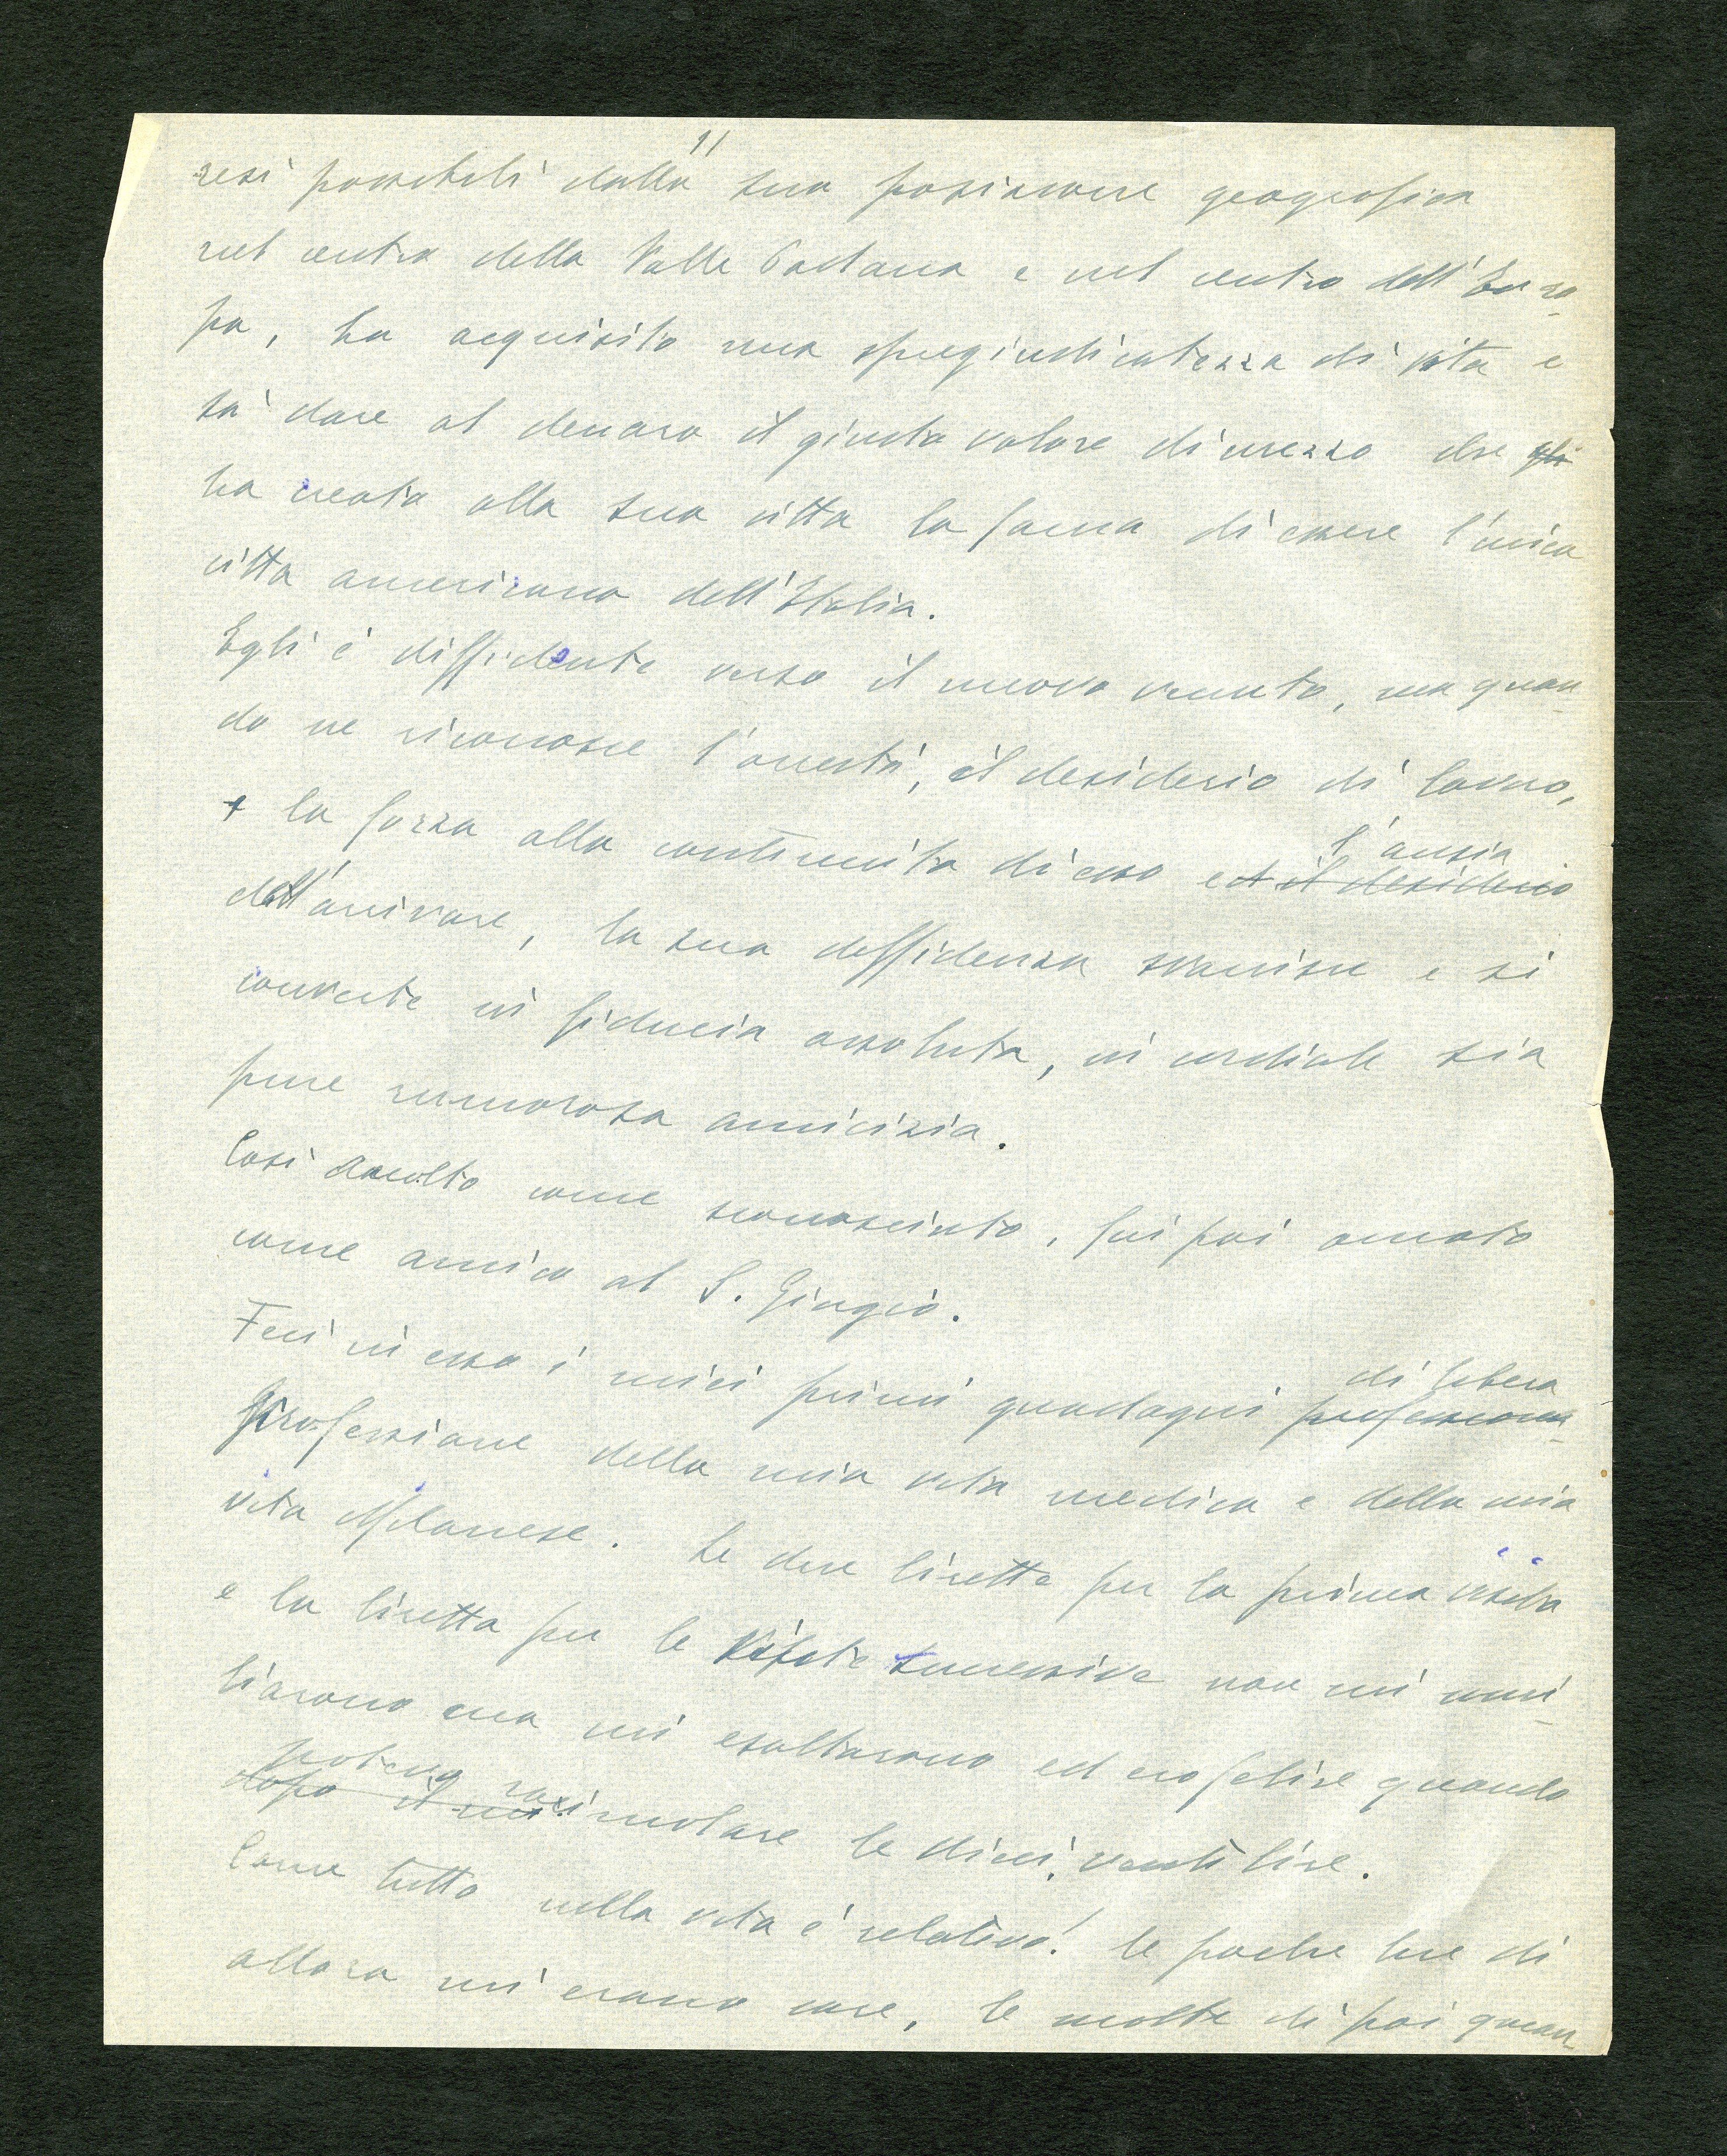 11
resi possibili dalla sua posizione geografica
nel centro della Valle Padana e nel centro dell'Euro-
pa, ha acquisito una spregiudicatezza di vita e
sà dare al denaro il giusto valore di mezzo che gli
ha creato alla sua città la fama di essere l'unica
città americana dell'Italia.
Egli è diffidente verso il nuovo venuto, ma quan-
do ne riconosce l'onestà, il desiderio di lavoro,
la forza alla continuità di esso ed il desiderio
l'ansia
dell'arrivare, la sua diffidenza svanisce e si
converte in fiducia assoluta, in cordiale sia
pure rumorosa amicizia.
Così accolto come sconosciuto, fui poi amato
come amico al S. Giorgio.
Feci in esso i miei primi guadagni
di libera
professione della mia vita medica e della mia
vita Milanese. Le due lirette per la prima visita
e la liretta per le visite successive non mi umi-
liarono ma mi esaltarono ed ero felice quando
potevo racimolare le dieci, venti lire.
dopo il
Come tutto nella vita è relativo! le poche lire di
allora mi erano care, le molte di poi quan-